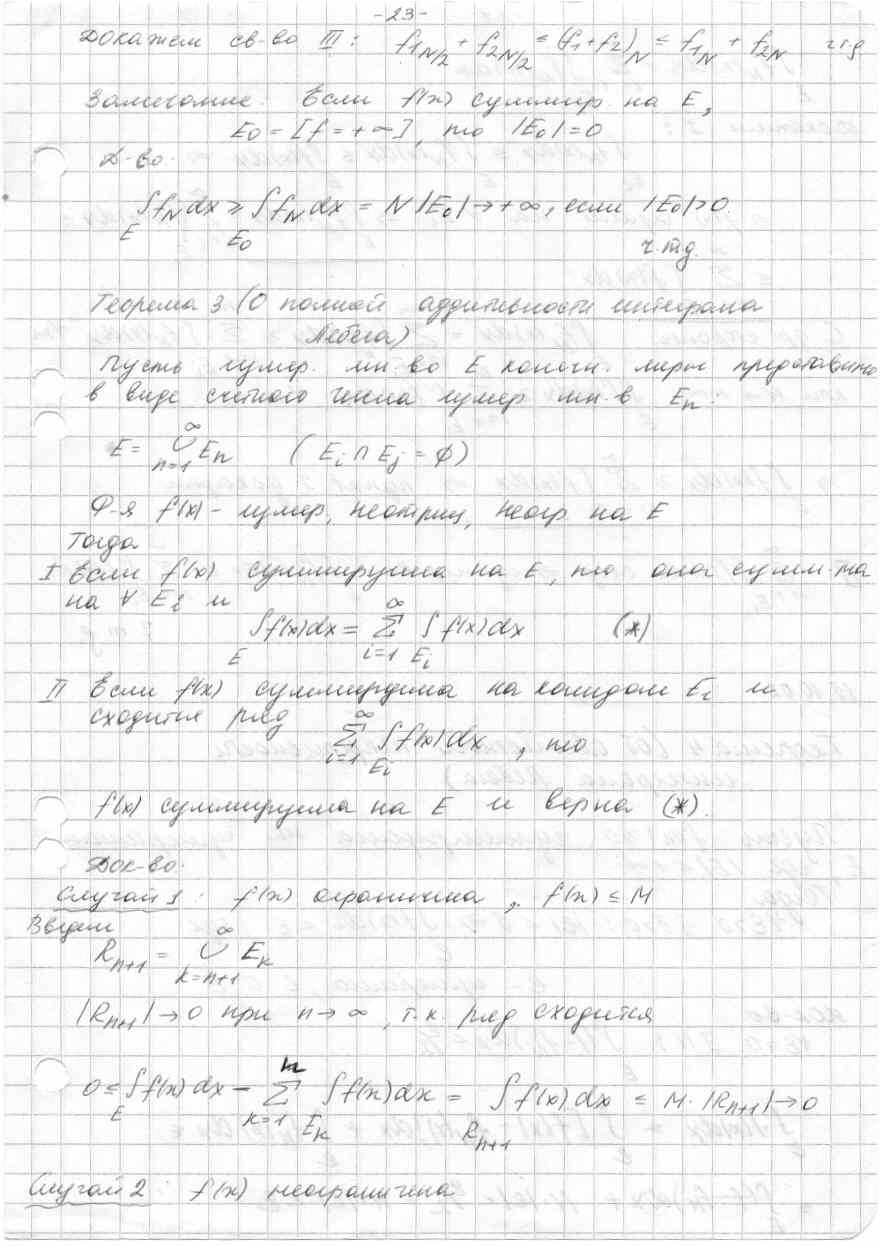 -23-
Докажем св-во III: f₁N/2 + f₂N/2 ≤ (f₁+f₂)N ≤ f₁N + f₂N чтд
Замечание. Если f(x) суммир. на E,
E₀ = [f = +∞], то |E₀| = 0
Д-во.
∫E fN dx ≥ ∫E₀ fN dx = N|E₀| → +∞, если |E₀|>0.
ч.т.д.
Теорема 3 (О полной аддитивности интеграла
Лебега)
Пусть измер. мн-во E конечн. меры представимо
в виде счетного числа измер мн-в Eₙ:
E = ∞∪n=1 Eₙ ( Ei ∩ Ej = ∅)
Ф-я f(x) - измер, неотриц, неогр. на E
Тогда
I Если f(x) суммируема на E, то она сумм-ма
на ∀ Ei и
∫E f(x)dx = ∞Σi=1 ∫Ei f(x)dx (*)
II Если f(x) суммируема на каждом Ei и
сходится ряд
∞Σi=1 ∫Ei f(x)dx, то
f(x) суммируема на E и верна (*).
Док-во.
Случай 1: f(x) ограничена, f(x) ≤ M
Введем
Rn+1 = ∞∪k=n+1 Ek
|Rn+1| → 0 при n → ∞, т.к. ряд сходится
0 ≤ ∫E f(x)dx − nΣk=1 ∫Ek f(x)dx = ∫Rn+1 f(x)dx ≤ M·|Rn+1| → 0
Случай 2: f(x) неограничена